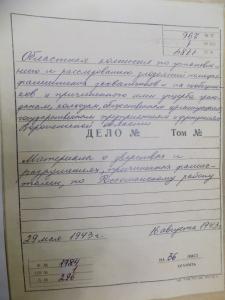 967
1
1784
Областная комиссия по установле-
нию и расследованию злодеяний немецко-
фашистских захватчиков и их сообщни-
ков и причиненного ими ущерба граж-
данам, колхозам, общественным организациям,
государственным предприятиям и учреждениям
Воронежской области
ДЕЛО № Том №
Материалы о зверствах и
разрушениях, причиненных фашис-
тами, по району
29 мая 1943 г.
16 августа 1943 г.
Ф. № 1784
оп. № 1
Д. № 296
на 36 лист.
хранить